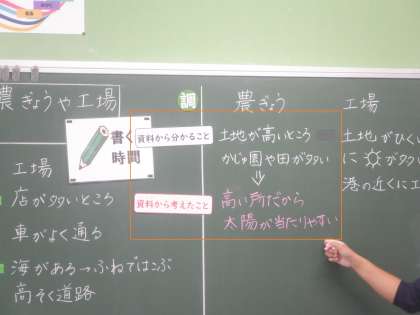 農ぎょうや工場
調
農ぎょう
工場
書く
時間
資料から分かること
土地が高いところ
かじゅ園や田が多い
土地がひく
に
が多
港の近くに工
工場
店が多いところ
車がよく通る
海がある→ふねではこぶ
高そく道路
資料から考えたこと
高い所だから
太陽が当たりやすい